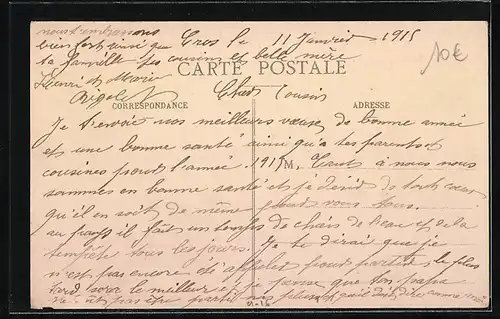 nous t'embrassons
bien fort ainsi que Cros le 11 Janvier 1915
ta famille tes cousins et belle mère
Henri et Marie
10€
CARTE POSTALE
Cher Cousin
CORRESPONDANCE
ADRESSE
Je t'envoie nos meilleurs vœux de bonne année
et une bonne santé ainsi qu'a tes parents et
cousines pour l'année 1915 M, Tant à nous nous
sommes en bonne santé et je désire de tout cœur
qu'il en soit de même pour vous tous.
au il fait un temps de chien de l'eau et de la
tempête tous les jours. Je te dirai que je
n'est pas encore été appeler pour partir, le plus
tard sera le meilleur et je pense que ton papa
pas être partit non plus